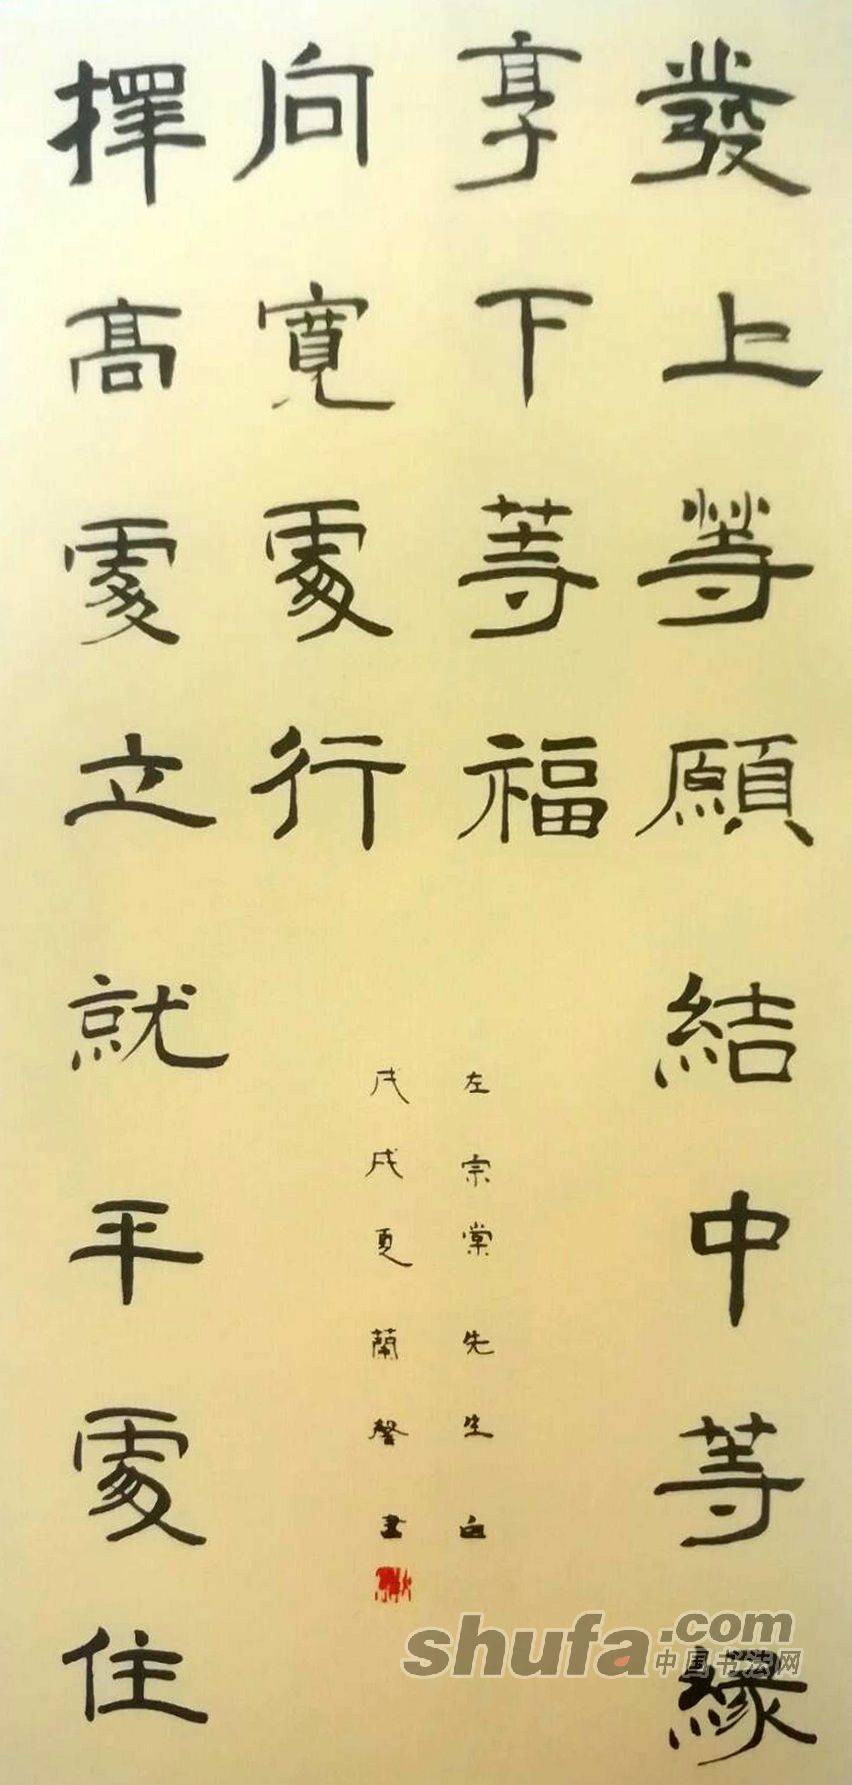 發上等願結中等緣
享下等福
擇高處立就平處住
向寬處行
左宗棠先生
戊戌夏蘭馨書
shufa.com
中国书法网